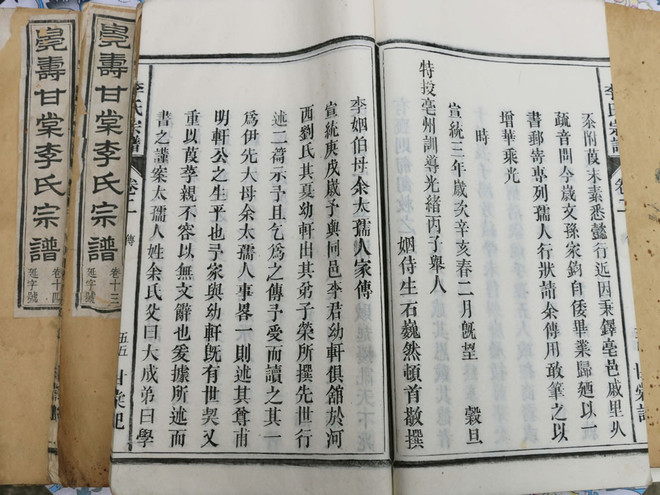 李氏宗譜
卷二
忝附葭末素悉懿行近因秉鐸亳邑戚里久
疏音問今歲文孫家鈞自倭畢業歸廼以一
書郵寄專列孺人行狀請余傳用敢筆之以
增華乘光
時
宣統三年歲次辛亥春二月旣望 穀旦
特授亳州訓導光緒丙子舉人
姻侍生石巍然頓首敬撰
李姻伯母余太孺人家傳
宣統庚戌歲予與同邑李君幼軒俱舘於河
西劉氏其夏幼軒出其弟子榮所撰先世行
述二篇示予且乞爲之傳予受而讀之其一
爲伊先大母余太孺人事畧一則述其尊甫
明軒公之生平也予家與幼軒旣有世契又
重以葭莩親不容以無文辭也爰據所述而
書之謹案太孺人姓余氏父曰大成弟曰學
李氏宗譜
卷二
傳
五五
甘棠
壽甘棠李氏宗譜
卷十三
延字號
壽甘棠李氏宗譜
卷十四
延字號